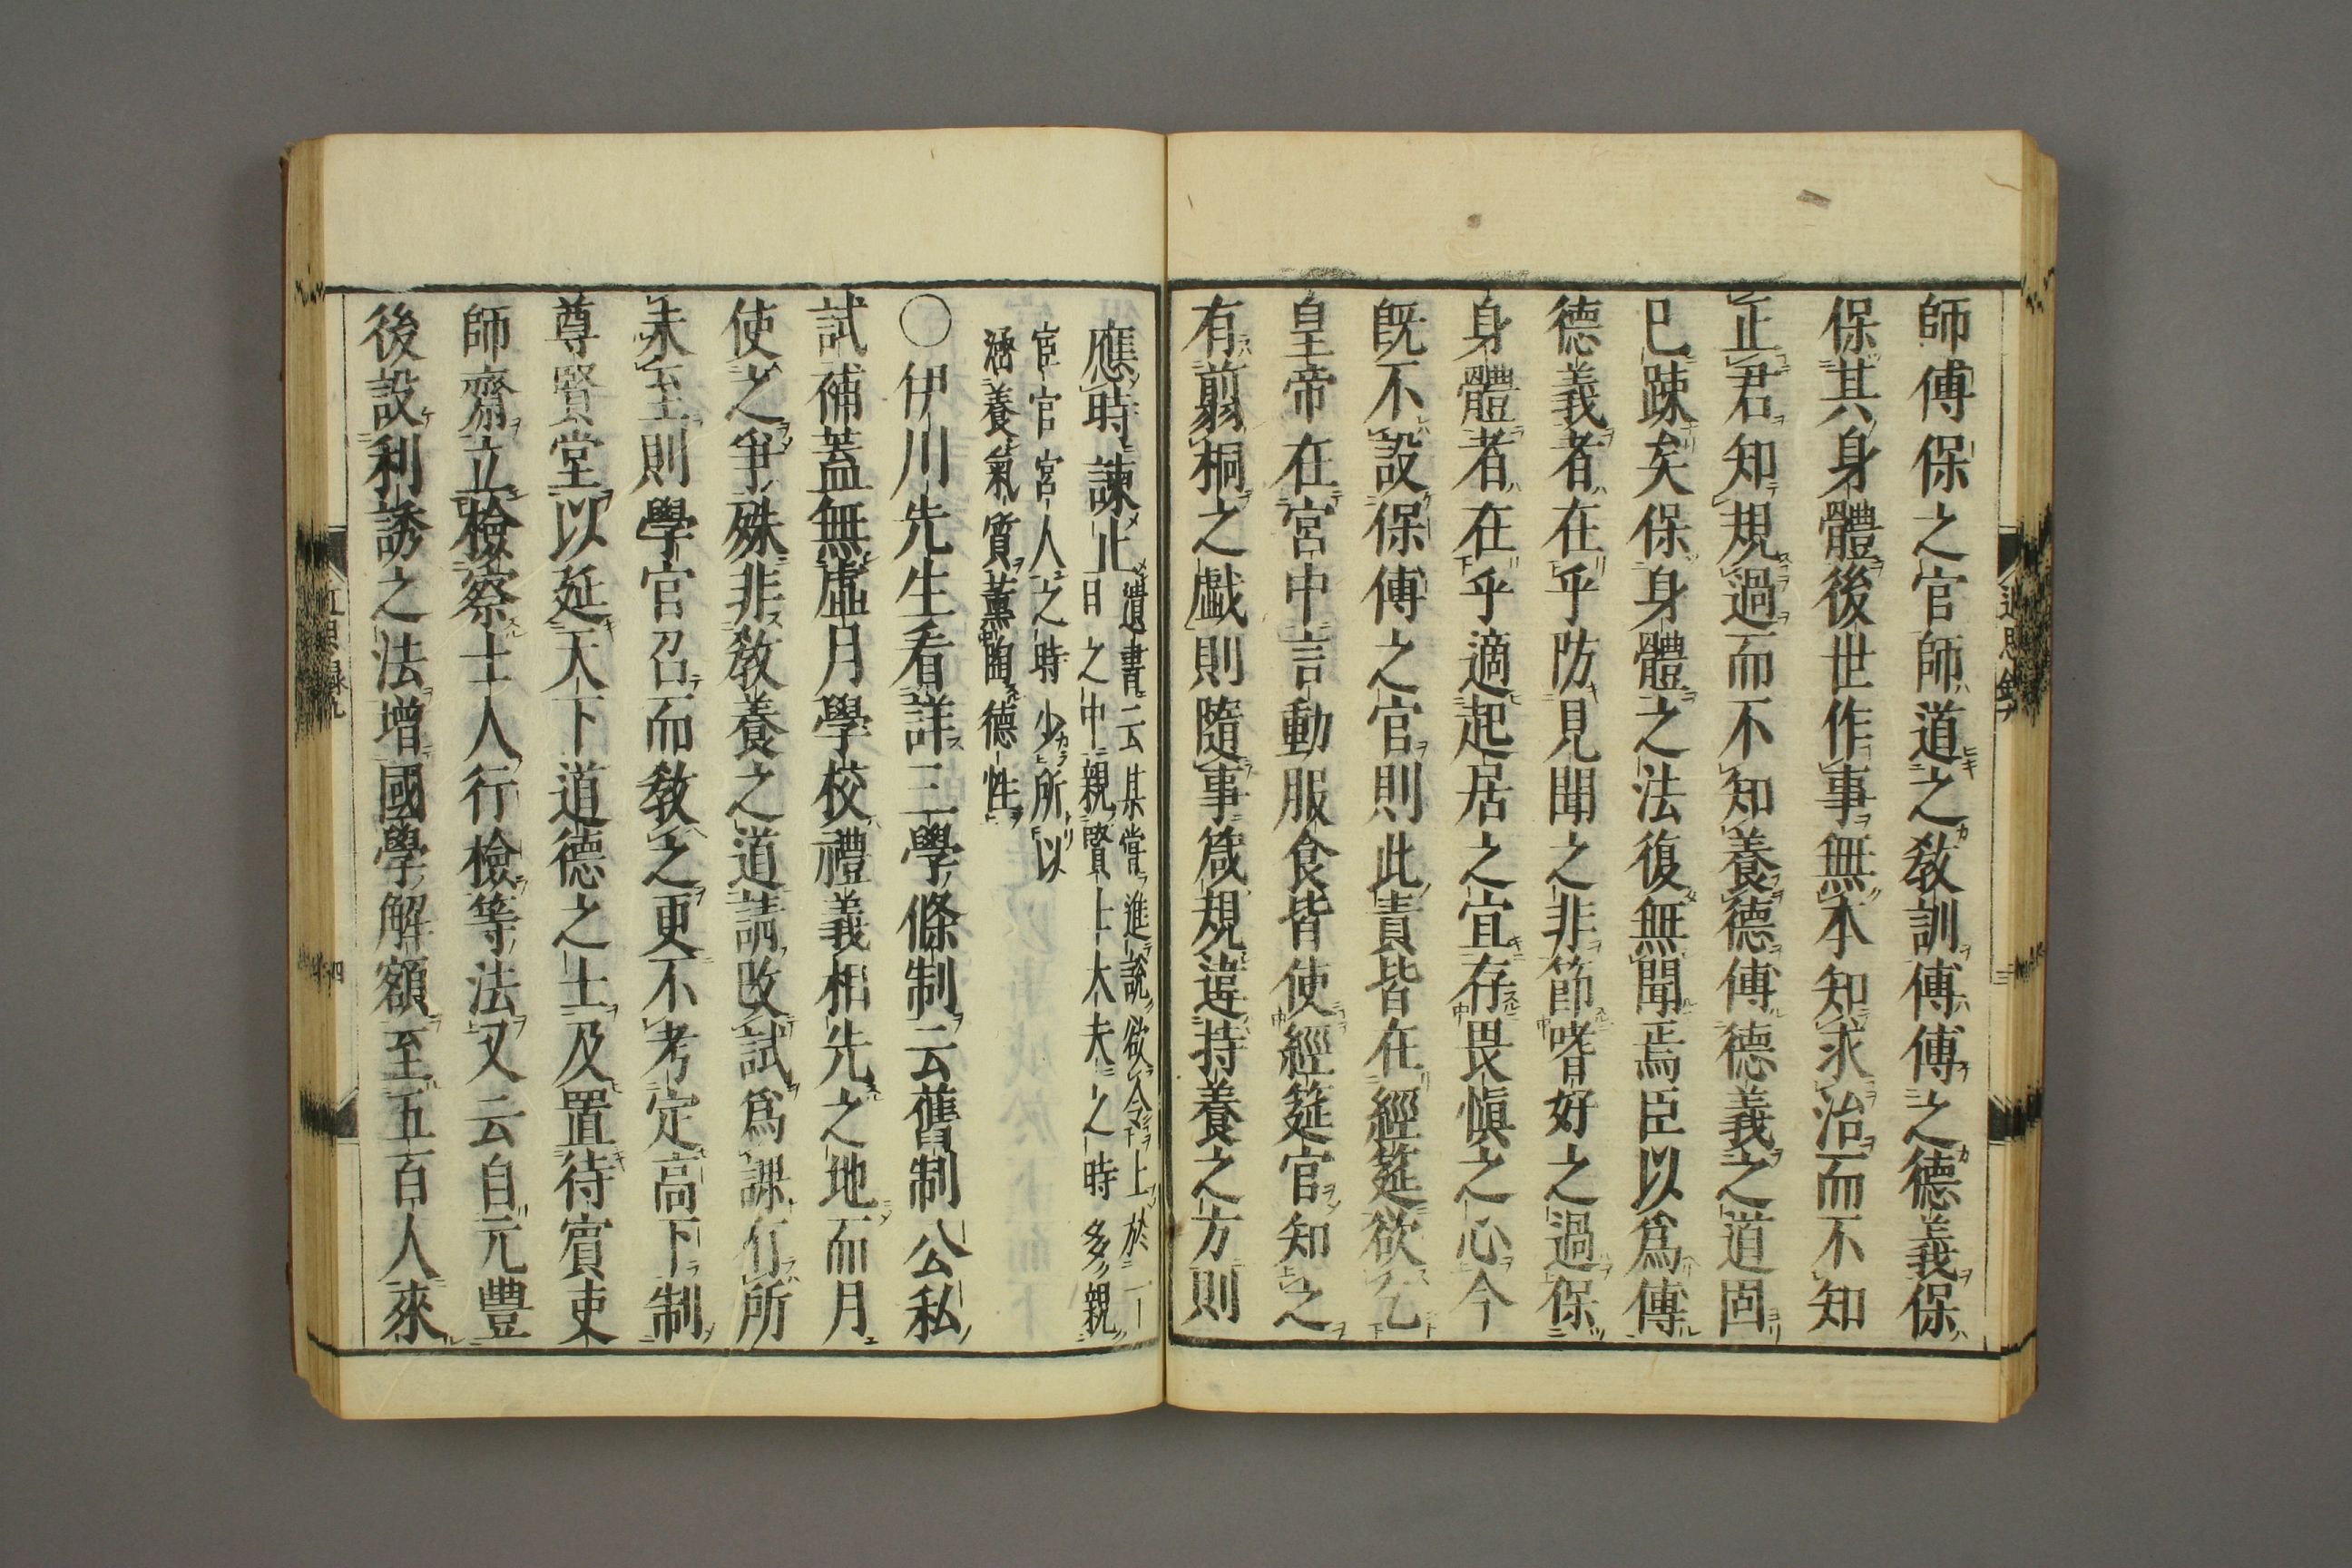 師傅保之官師道之敎訓傅傅之德義保
保其身體後世作事無本知求治而不知
正君知規過而不知養德傅德義之道固
已疎矣保身體之法復無聞焉臣以爲傅
德義者在乎防見聞之非節嗜好之過保
身體者在乎適起居之宜存畏愼之心今
既不設保傅之官則此責皆在經筵欲乞
皇帝在宮中言動服食皆使經筵官知之
有翦桐之戲則隨事箴規違持養之方則
應時諫止遺書云某嘗進說欲令上於一
日之中親賢士大夫之時多親
宦官宮人之時少所以
涵養氣質薰陶德性
○伊川先生看詳三學條制云舊制公私
試補蓋無虛月學校禮義相先之地而月
使之爭殊非敎養之道請改試爲課有所
未至則學官召而敎之更不考定高下制
尊賢堂以延天下道德之士及置待賓吏
師齋立檢察士人行檢等法又云自元豐
後設利誘之法增國學解額至五百人來